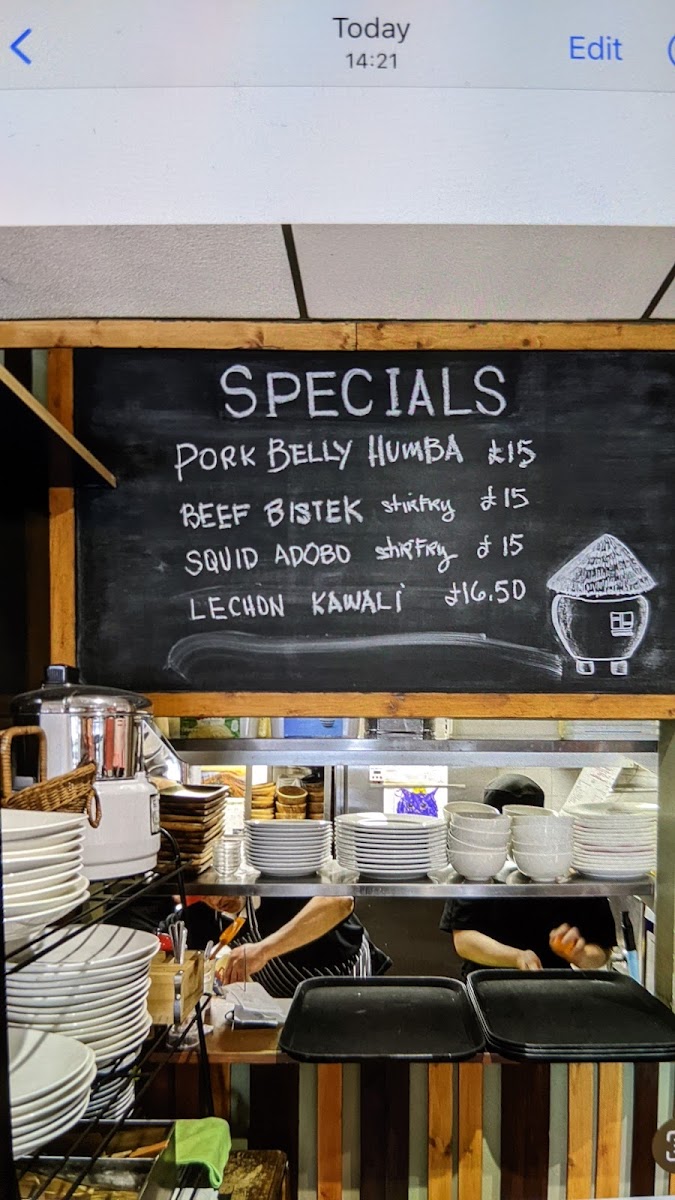 Today
14:21
Edit
SPECIALS
PORK BELLY HUMBA £15
BEEF BISTEK stirfry £15
SQUID ADOBO stirfry £15
LECHON KAWALI £16.50